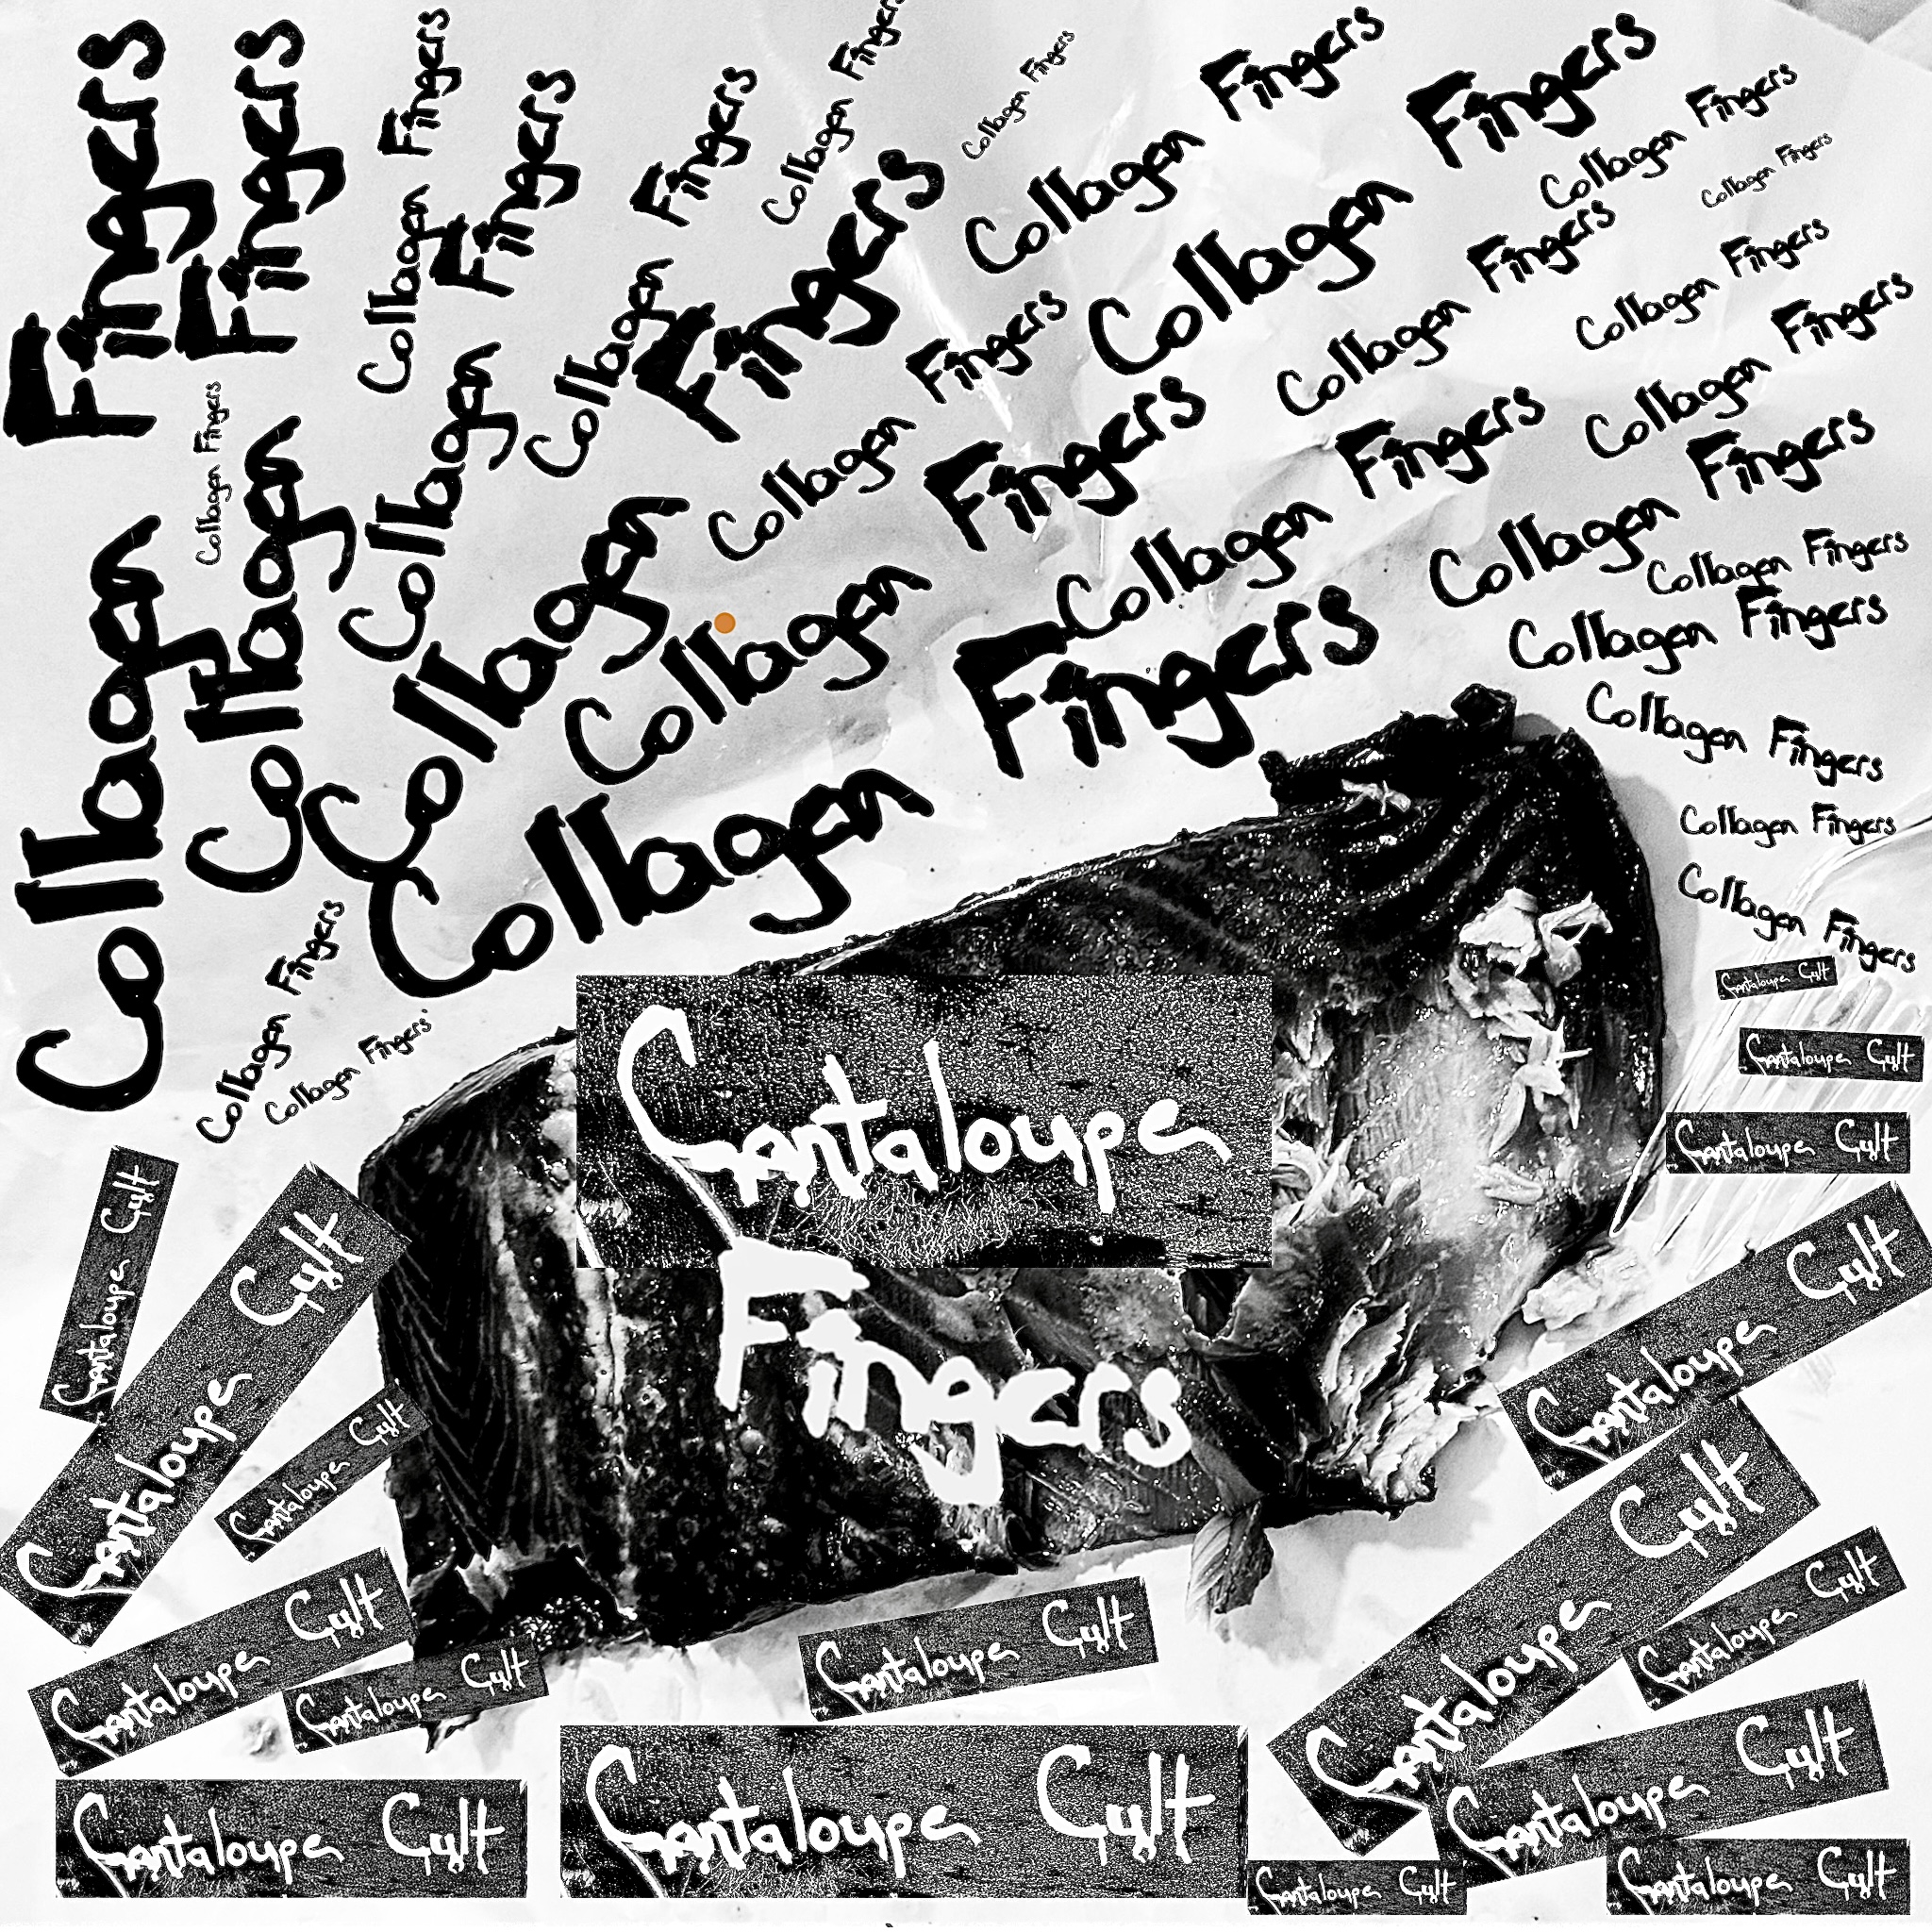 Collagen Fingers
Collagen Fingers
Collagen Fingers
Collagen Fingers
Collagen Fingers
Collagen Fingers
Collagen Fingers
Collagen Fingers
Collagen Fingers
Collagen Fingers
Collagen Fingers
Collagen Fingers
Collagen Fingers
Collagen Fingers
Collagen Fingers
Collagen Fingers
Collagen Fingers
Collagen Fingers
Collagen Fingers
Collagen Fingers
Collagen Fingers
Collagen Fingers
Collagen Fingers
Collagen Fingers
Collagen Fingers
Collagen Fingers
Collagen Fingers
Collagen Fingers
Collagen Fingers
Cantaloupe
Fingers
Cantaloupe Cult
Cantaloupe Cult
Cantaloupe Cult
Cantaloupe Cult
Cantaloupe Cult
Cantaloupe Cult
Cantaloupe Cult
Cantaloupe Cult
Cantaloupe Cult
Cantaloupe Cult
Cantaloupe Cult
Cantaloupe Cult
Cantaloupe Cult
Cantaloupe Cult
Cantaloupe Cult
Cantaloupe Cult
Cantaloupe Cult